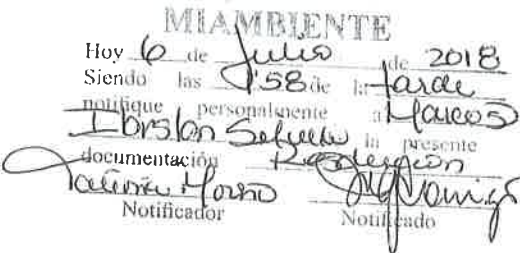 MIAMBIENTE
Hoy 6 de Julio de 2018
Siendo las 1:58 de la tarde
notifique personalmente a Marcos
la presente
documentación Resolución
Notificador Notificado